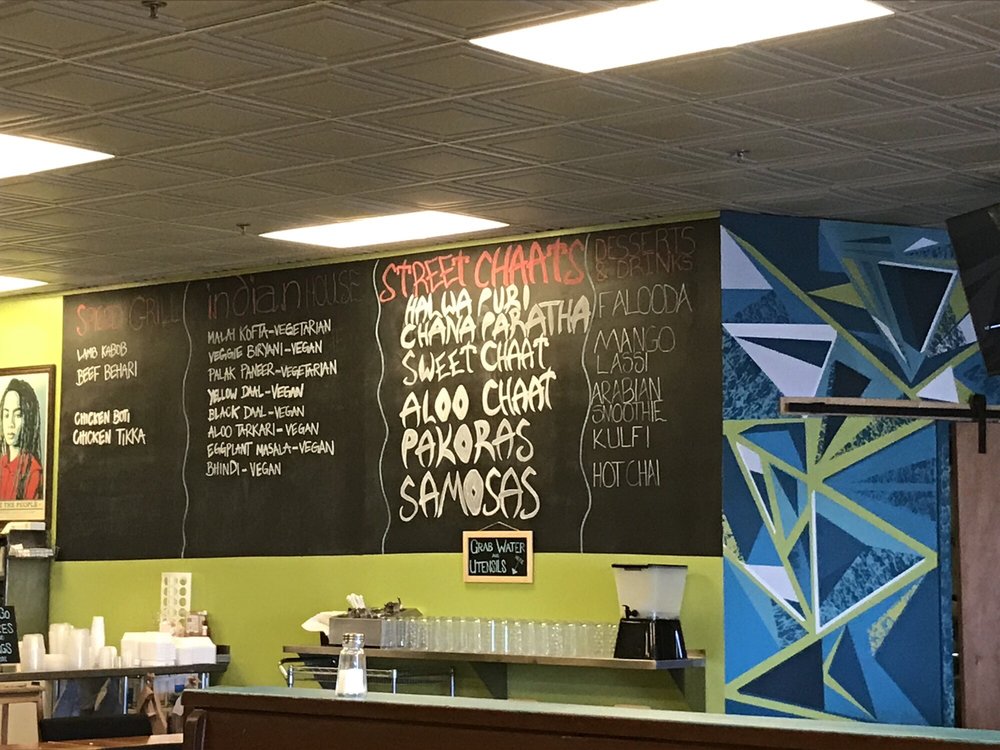 GRILL
LAMB KABOB
BEEF BEHARI
CHICKEN BOTI
CHICKEN TIKKA
indian HOUSE
MALAI KOFTA-VEGETARIAN
VEGGIE BIRYANI-VEGAN
PALAK PANEER-VEGETARIAN
YELLOW DAAL-VEGAN
BLACK DAAL-VEGAN
ALOO TARKARI-VEGAN
EGGPLANT MASALA-VEGAN
BHINDI-VEGAN
STREET CHAATS
HALWA PURI
CHANA PARATHA
SWEET CHAAT
ALOO CHAAT
PAKORAS
SAMOSAS
DESSERTS
& DRINKS
FALOODA
MANGO
LASSI
ARABIAN
SMOOTHIE
KULFI
HOT CHAI
GRAB WATER
AND
UTENSILS
THE PEOPLE